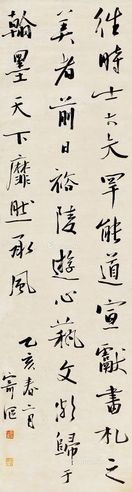 往時士大夫罕能道宣獻書札之
美者前日裕陵遊心藝文嘗歸于
翰墨天下靡然承風
乙亥春二月